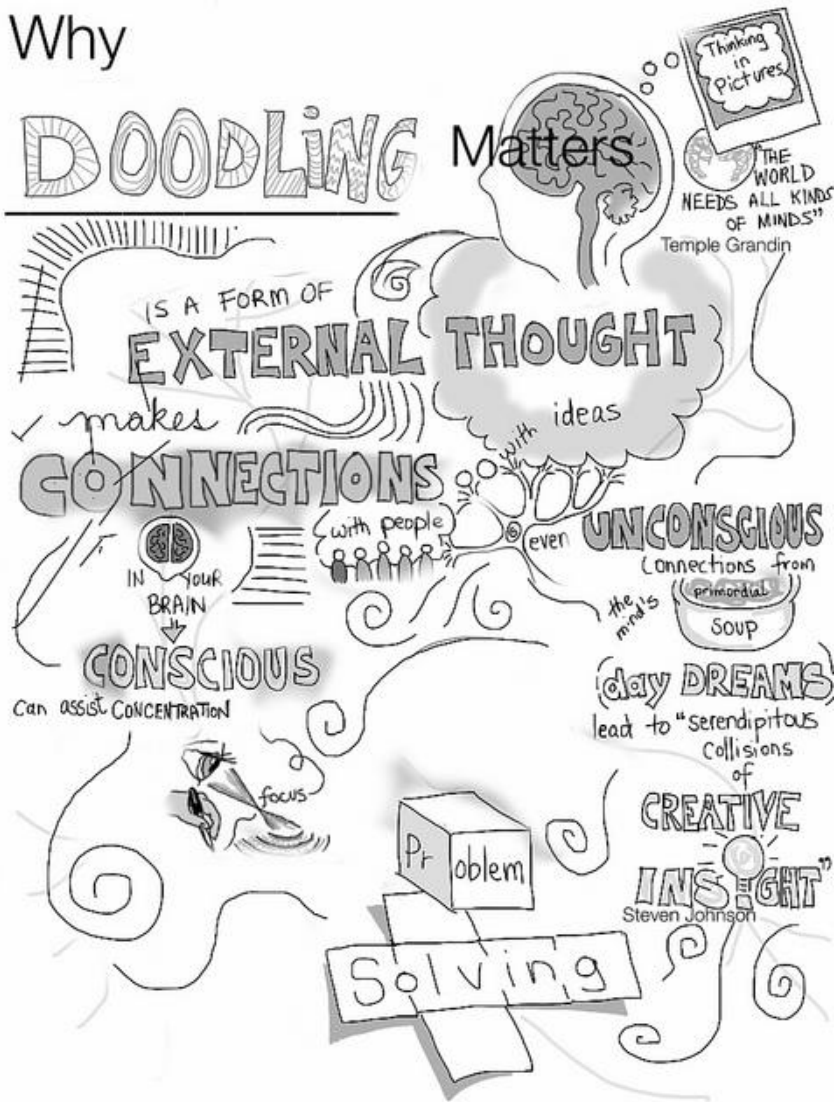 Why
DOODLiNG
Matters
Thinking
in
Pictures
"THE
WORLD
NEEDS ALL KINDS
OF MINDS"
Temple Grandin
IS A FORM OF
EXTERNAL THOUGHT
makes
CONNECTIONS
with ideas
with people
IN YOUR
BRAIN
even UNCONSCIOUS
Connections from
the
mind's
primordial
SOUP
CONSCIOUS
can assist CONCENTRATION
focus
(day DREAMS)
lead to "serendipitous
Collisions
of
CREATIVE
INSIGHT"
Steven Johnson
Problem
Solving